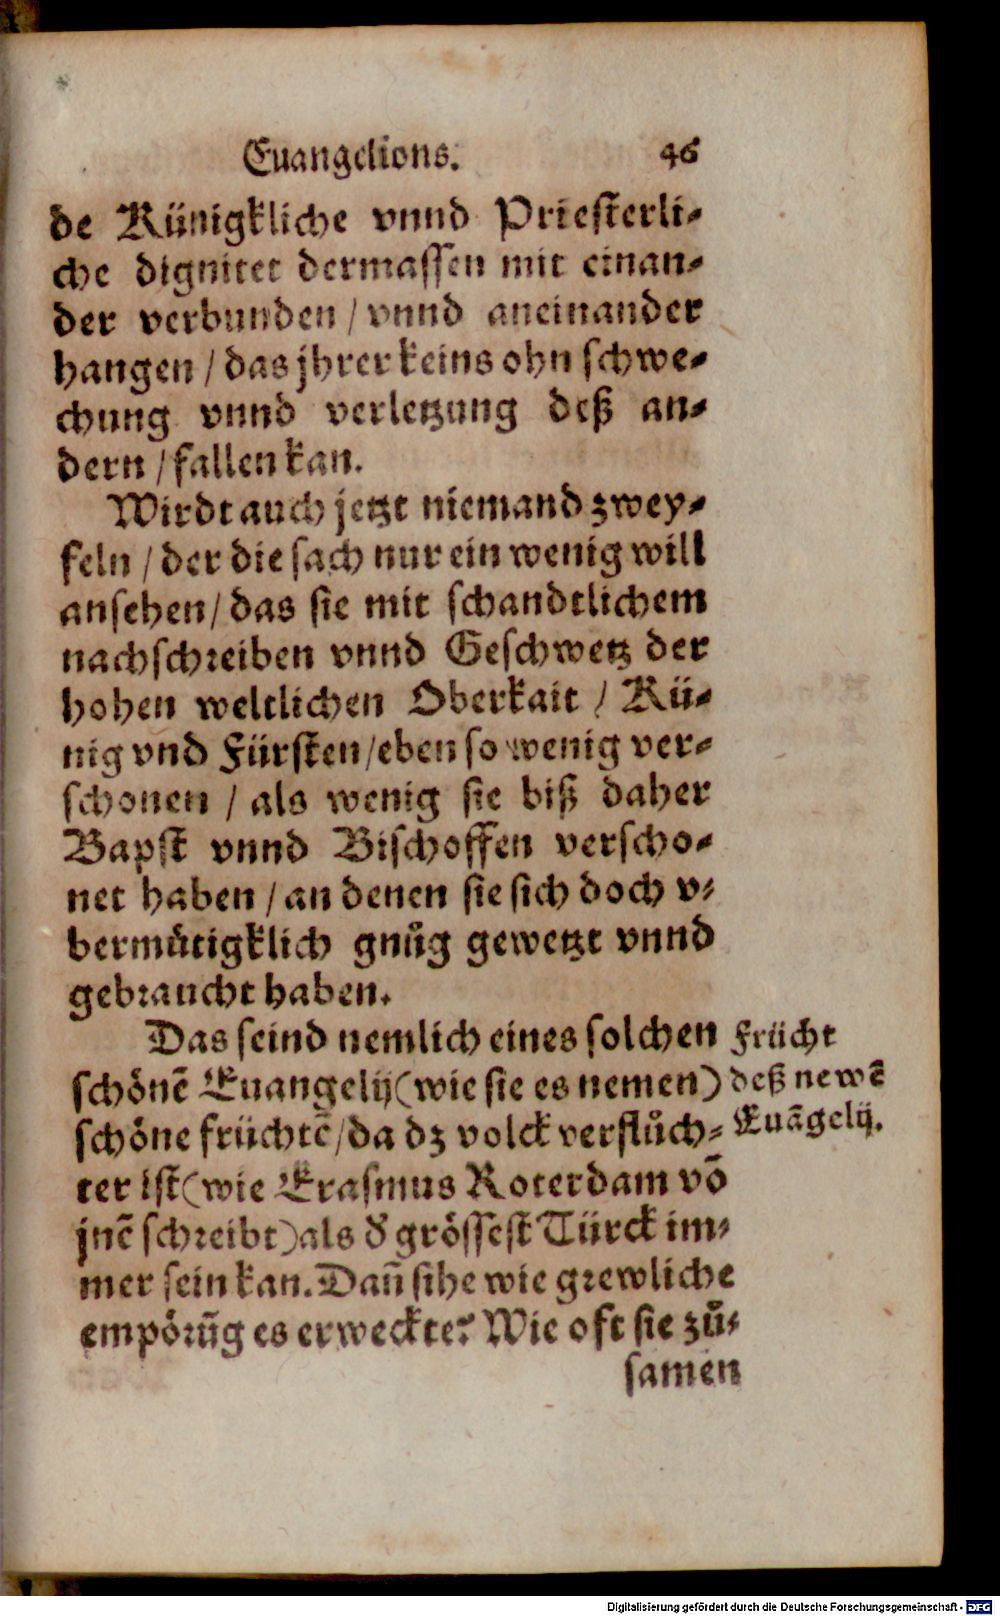 Euangelions. 46
de Künigkliche vnnd Priesterli-
che dignitet dermassen mit einan-
der verbunden / vnnd aneinander
hangen / das jhrer keins ohn schwe-
chung vnnd verletzung deß an-
dern / fallen kan.
Wirdt auch jetzt niemand zwey-
feln / der die sach nur ein wenig will
ansehen / das sie mit schandtlichem
nachschreiben vnnd Geschwetz der
hohen weltlichen Oberkait / Kü-
nig vnd Fürsten / eben so wenig ver-
schonen / als wenig sie biß daher
Bapst vnnd Bischoffen verscho-
net haben / an denen sie sich doch v-
bermůtigklich gnůg gewetzt vnnd
gebraucht haben.
Das seind nemlich eines solchen
schönẽ Euangelij (wie sie es nemen)
schöne früchtẽ / da dz volck verflůch-
ter ist (wie Erasmus Roterdam võ
jnẽ schreibt) als d̕ grössest Türck im-
mer sein kan. Dañ sihe wie grewliche
empörũg es erweckte? Wie oft sie zů-
samen
Frücht
deß newẽ
Euãgelij.
Digitalisierung gefördert durch die Deutsche Forschungsgemeinschaft - DFG